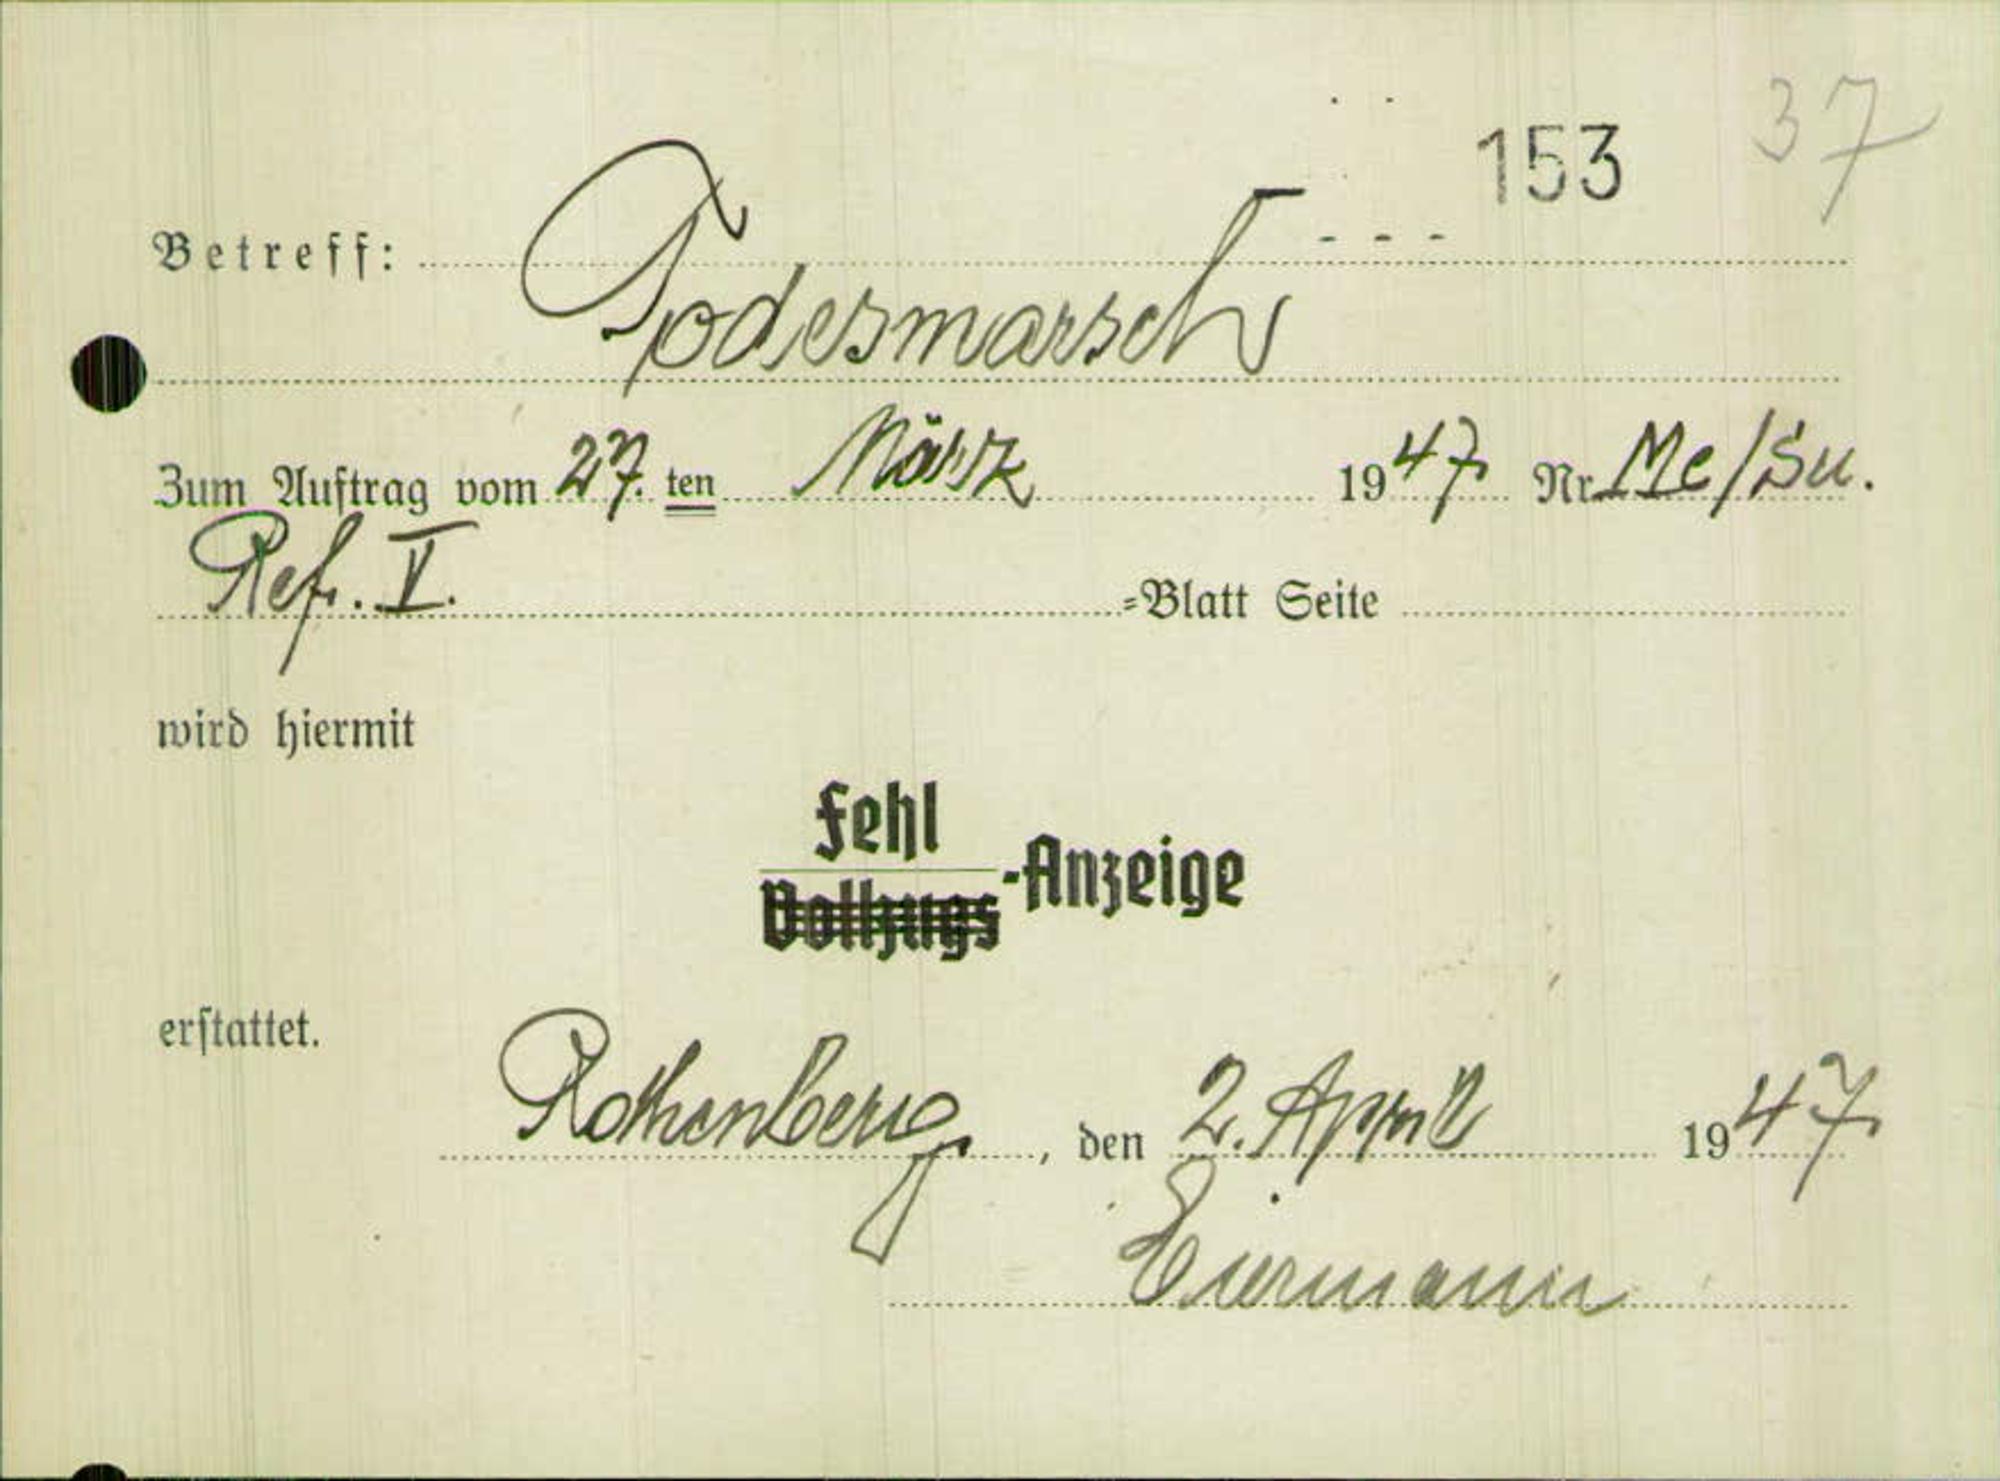 153 37
Betreff: Todesmarsch
Zum Auftrag vom 27. ten März 1947 Nr. Me/Su.
Ref. V. =Blatt Seite
wird hiermit
Fehl
-Anzeige
Vollzugs
erstattet.
Rothenberg, den 2. April 1947
Eiermann